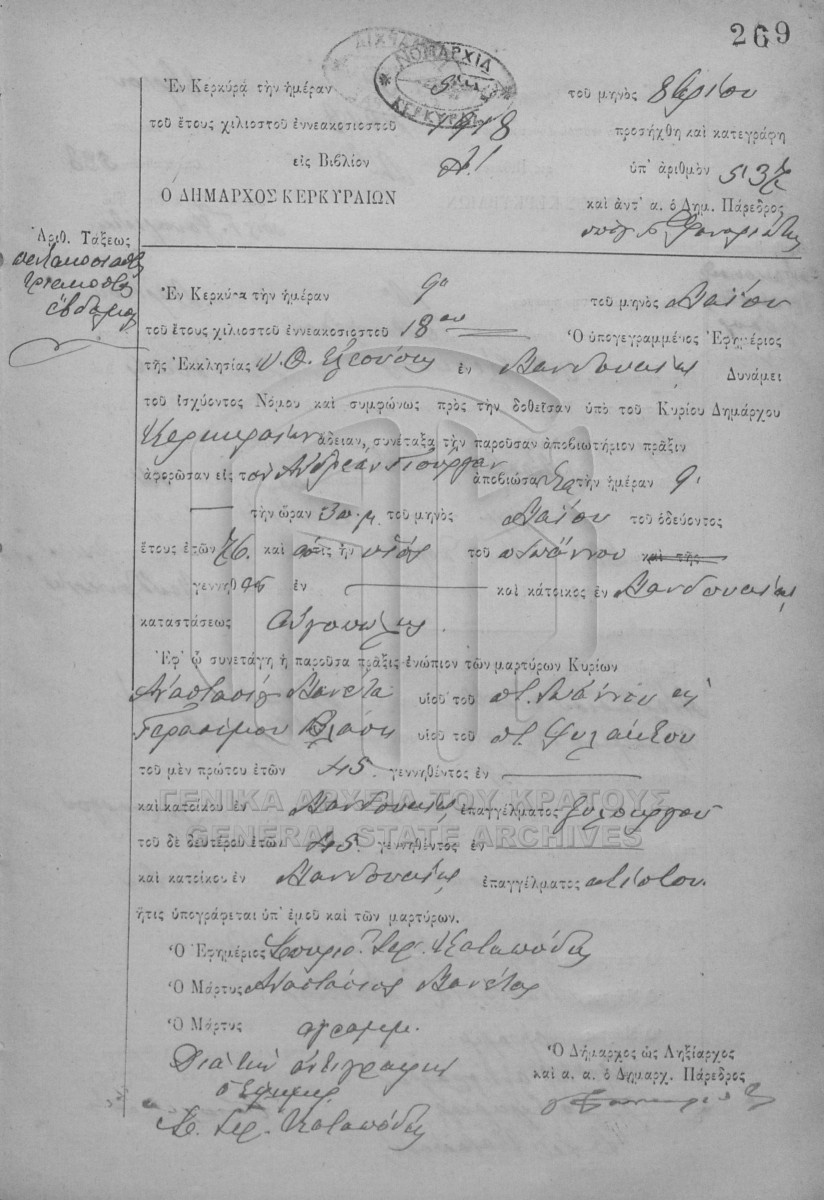 269
ΝΟΜΑΡΧΙΑ
ΚΕΡΚΥΡΑΣ
Ἐν Κερκύρᾳ τὴν ἡμέραν τοῦ μηνὸς 8βρίου
τοῦ ἔτους χιλιοστοῦ ἐννεακοσιοστοῦ 1918 προσήχθη καὶ κατεγράφη
εἰς Βιβλίον Α! ὑπ' ἀριθμὸν 537
Ο ΔΗΜΑΡΧΟΣ ΚΕΡΚΥΡΑΙΩΝ καὶ ἀντ' α. ὁ Δημ. Πάρεδρος
Ἀριθ. Τάξεως
πεντακοσιοστὸς
τριακοστὸς
ἕβδομος
Ἐν Κερκύρᾳ τὴν ἡμέραν 9ῃ τοῦ μηνὸς Μαΐου
τοῦ ἔτους χιλιοστοῦ ἐννεακοσιοστοῦ 18ου Ὁ ὑπογεγραμμένος Ἐφημέριος
τῆς Ἐκκλησίας Υ. Θ. Ἐλεούσης ἐν Μανδουκίῳ Δυνάμει
τοῦ ἰσχύοντος Νόμου καὶ συμφώνως πρὸς τὴν δοθεῖσαν ὑπὸ τοῦ Κυρίου Δημάρχου
Κερκυραίων ἄδειαν, συνέταξα τὴν παροῦσαν ἀποβιωτήριον πρᾶξιν
ἀφορῶσαν εἰς τὸν Ἀνδρέαν Γιούργαν ἀποβιώσαντα τὴν ἡμέραν 9
τὴν ὥραν 3 π.μ. τοῦ μηνὸς Μαΐου τοῦ ὁδεύοντος
ἔτους ἐτῶν 76 καὶ ὅστις ἦν υἱὸς τοῦ π Ἰωάννου καὶ τῆς
γεννηθεὶς ἐν καὶ κάτοικος ἐν Μανδουκίῳ
καταστάσεως
Ἐφ' ᾧ συνετάγη ἡ παροῦσα πρᾶξις ἐνώπιον τῶν μαρτύρων Κυρίων
Ἀναστασίου Μανέτα υἱοῦ τοῦ π. Ἰωάννου καὶ
Γερασίμου Βλάση υἱοῦ τοῦ π. Φυλάκτου
τοῦ μὲν πρώτου ἐτῶν 45 γεννηθέντος ἐν
καὶ κατοίκου ἐν Μανδουκίῳ ἐπαγγέλματος ξυλουργοῦ
τοῦ δὲ δευτέρου ἐτῶν 45 γεννηθέντος ἐν
καὶ κατοίκου ἐν Μανδουκίῳ ἐπαγγέλματος κτίστου
ἥτις ὑπογράφεται ὑπ' ἐμοῦ καὶ τῶν μαρτύρων.
Ὁ Ἐφημέριος Σπυρίδ. Ιερ. Καταπόδης
Ὁ Μάρτυς Ἀναστάσιος Μανέτας
Ὁ Μάρτυς ἀγράμμ.
Διὰ τὴν ἀντιγραφὴν
ὁ Ἐφημερ.
Σπ. Ιερ. Καταπόδης
Ὁ Δήμαρχος ὡς Ληξίαρχος
καὶ α. α. ὁ Δημαρχ. Πάρεδρος
ΓΕΝΙΚΑ ΑΡΧΕΙΑ ΤΟΥ ΚΡΑΤΟΥΣ
GENERAL STATE ARCHIVES